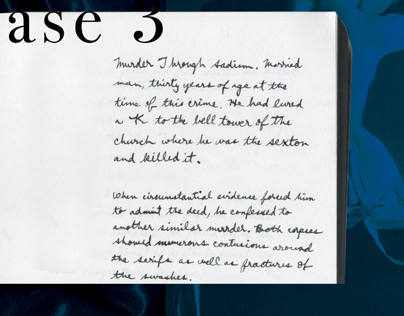 ase 3
Murder Through sadism. Married
man, thirty years of age at the
time of this crime. He had lured
a K to the bell tower of the
church where he was the sexton
and killed it.
When circumstantial evidence forced him
to admit the deed, he confessed to
another similar murder. Both corpses
showed numerous contusions around
the serifs as well as fractures of
the swashes.